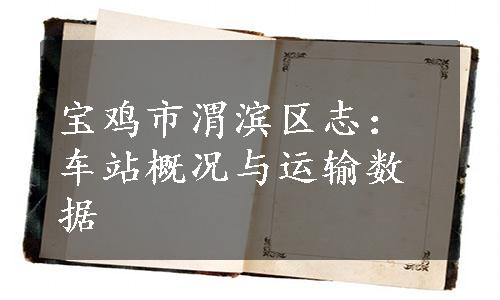 宝鸡市渭滨区志：
车站概况与运输数
据